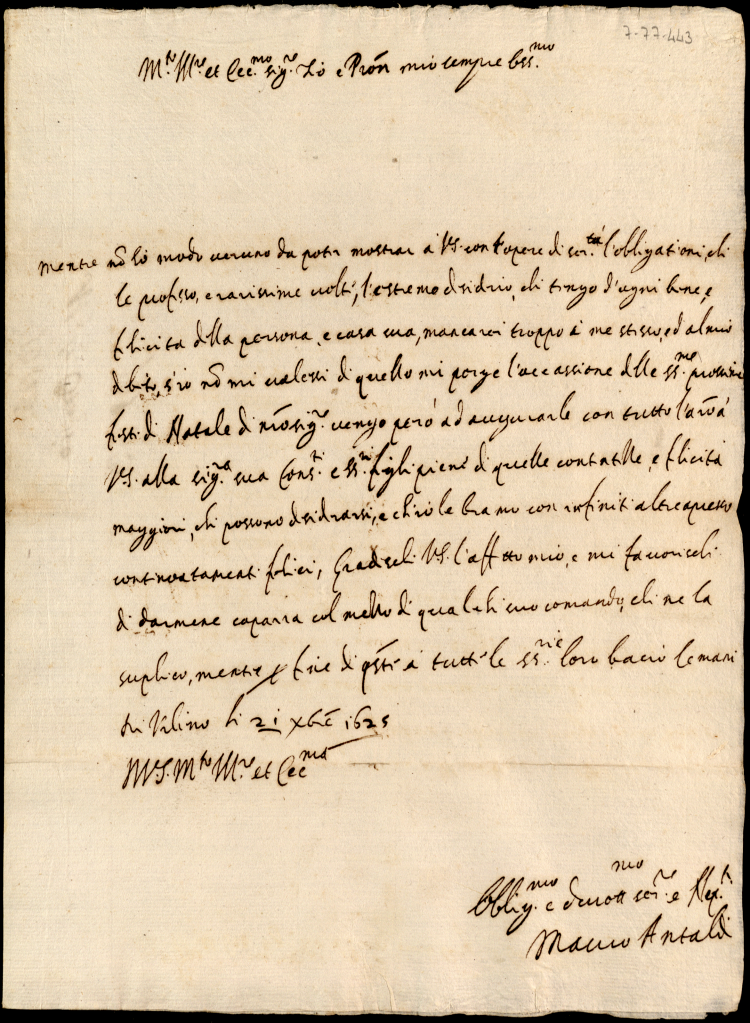 7-77-443
M.to Ill.re et Ecc.mo Sig.re Zio e Pron mio sempre Oss.mo
Mentre nõ hò modo veruno da poter mostrar à VS. con l'opere di ser.tù l'obligationi, che
le professo, e rarissime volte, l'estremo desiderio, che tengo d'ogni bene, e
felicità della persona, e casa sua, mancarei troppo à me stesso, ed al mio
debito, s'io nõ mi valessi di quello mi porge l'occassione delle SS.me prossime
feste di Natale di nro Sig.re vengo però ad augurarle con tutto l'
VS. alla Sig.ra sua Cons.te e SS.ri figli piene di quelle contentezze, e felicità
maggiori, che possono desidrarsi, e ch'io le bramo con infiniti altre apresso
continuatamente felici, Gradischi VS. l'affetto mio, e mi favorischi
di darmene caparra col mezzo di qualche suo comando, che ne la
suplico, mentre p fine di qste à tutte le SS.rie loro bacio le mani
Di Urbino li 21 Xbre 1625
Di VS. M.to Ill.re et Ecc.ma
Oblig.mo e devott.mo ser.re e Nep.te
Antaldi